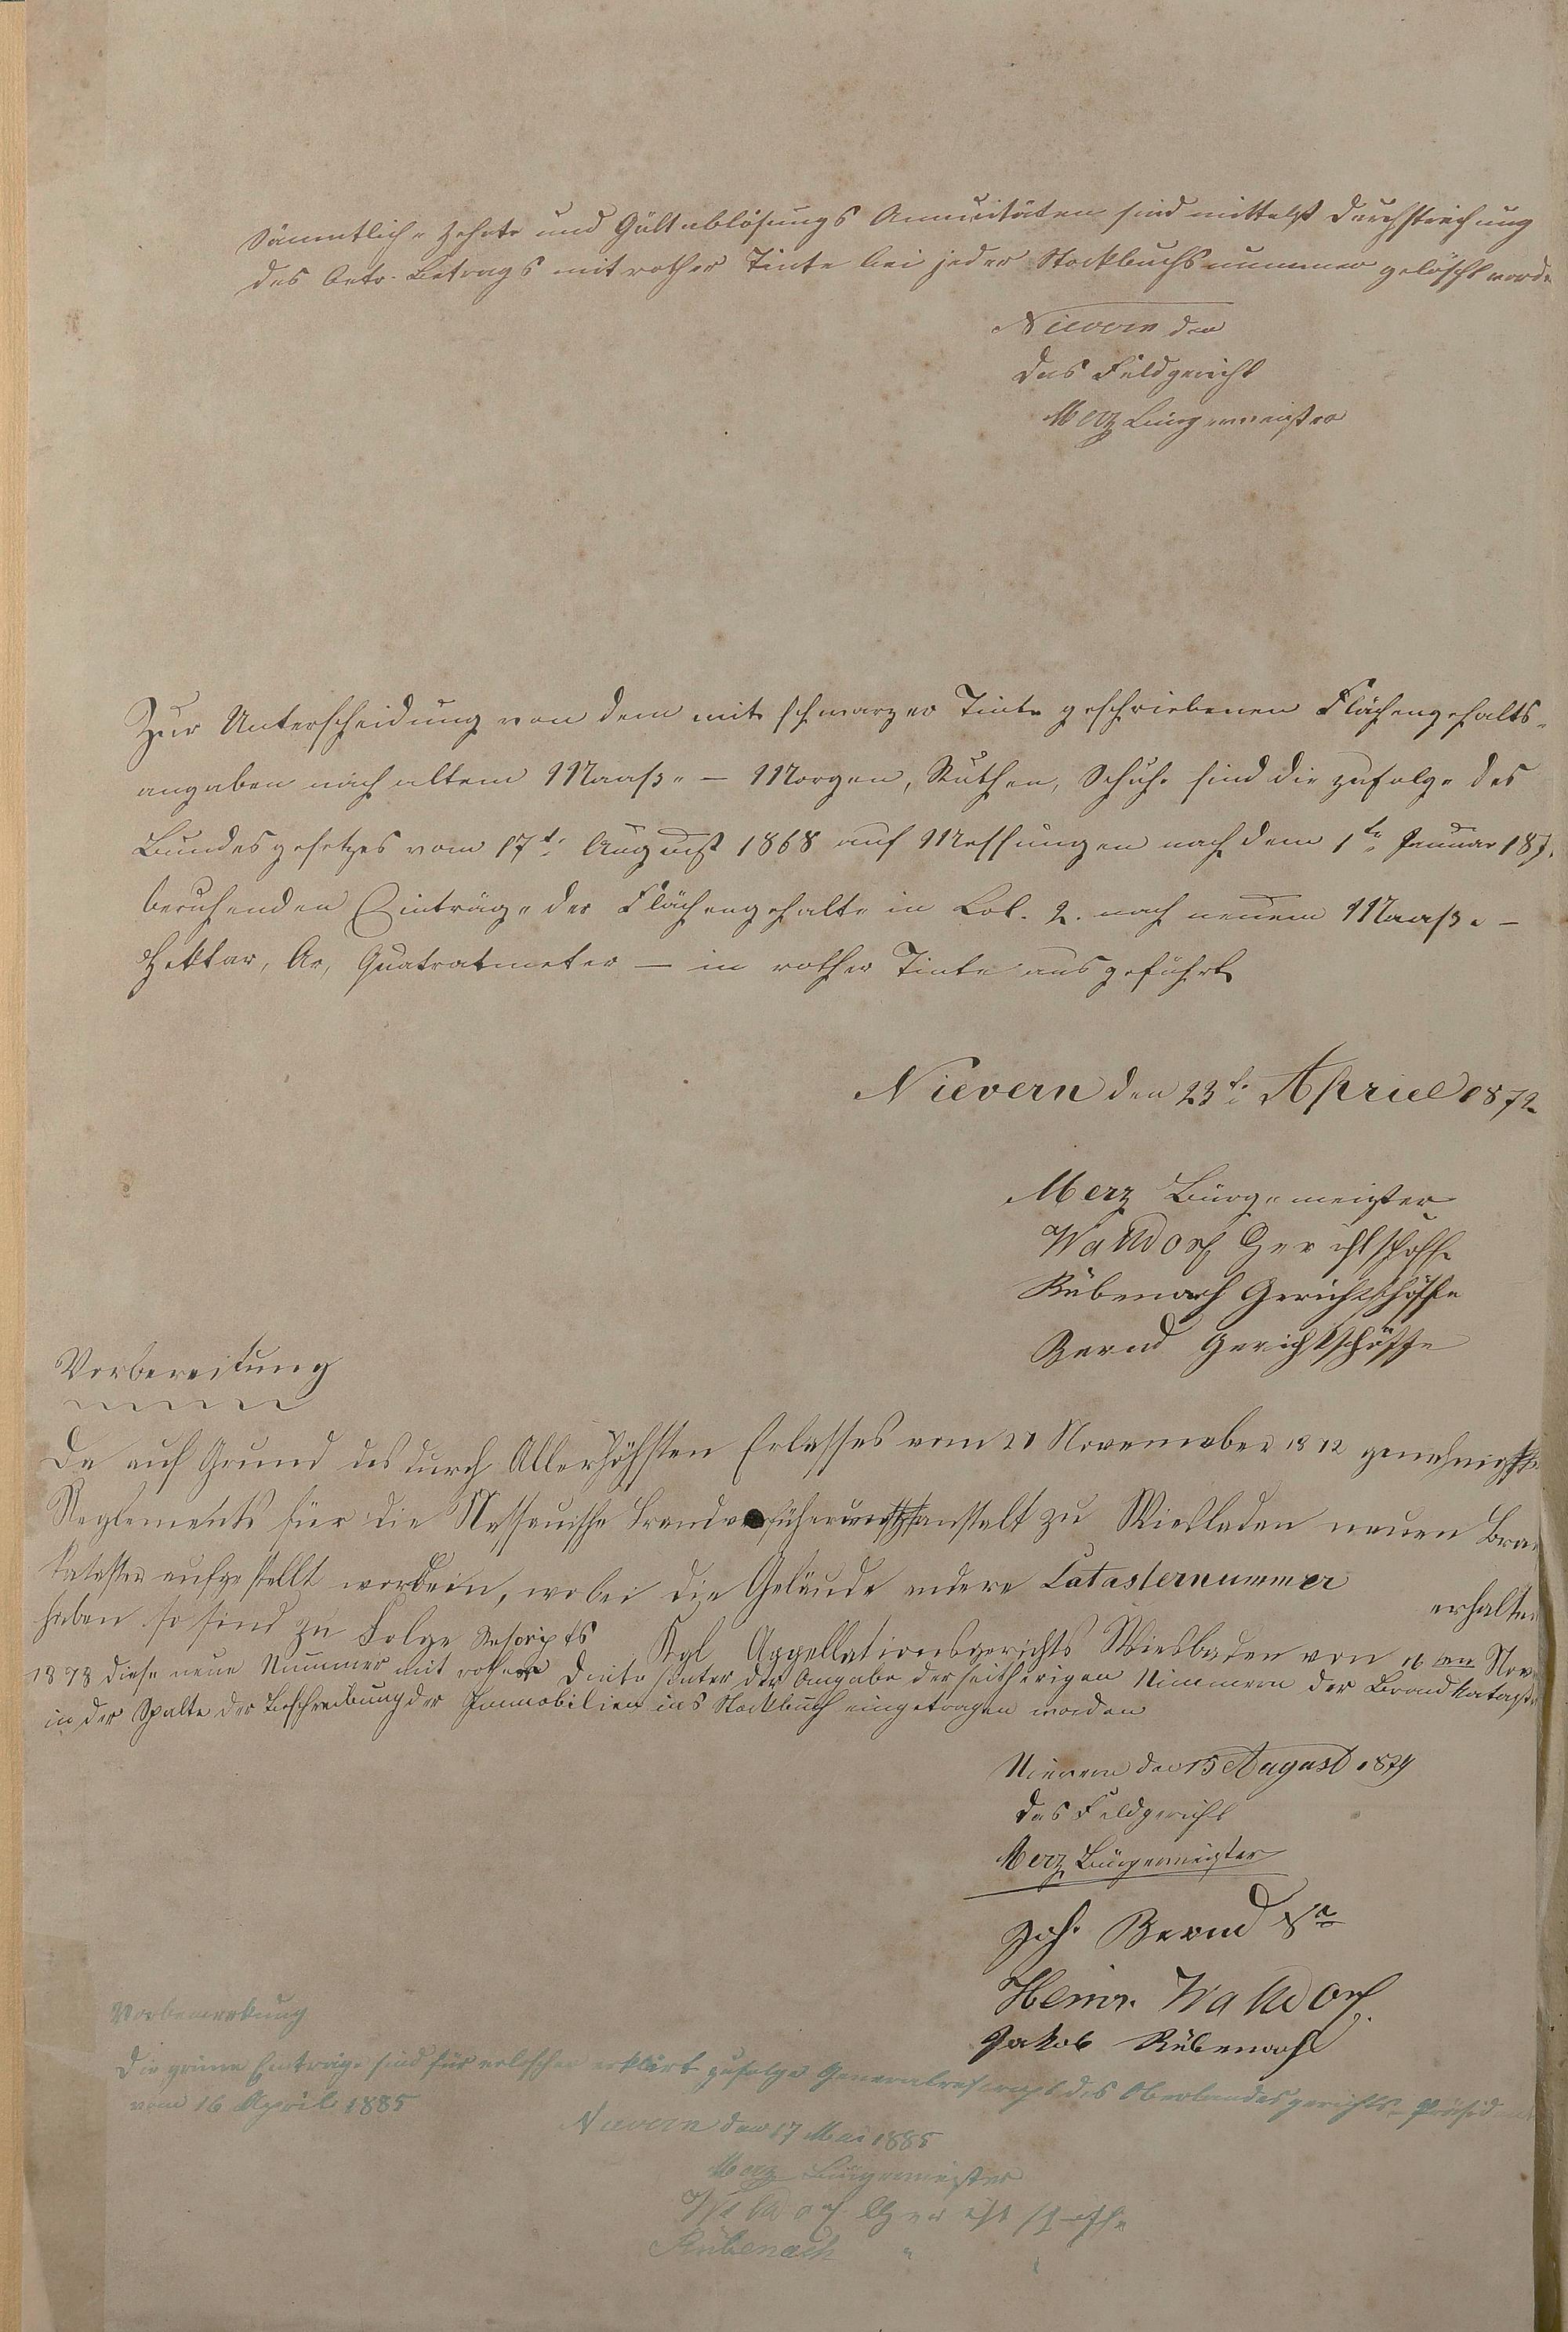 Sämmtliche Zehnte und Gültablösungs Annuitäten sind mittelst Durchstreichung
des betr. Betrags mit rother Tinte bei jeder Stockbuchsnummer gelöscht word
Nievern den
Das Feldgericht
Merz Bürgermeister
Zur Unterscheidung von dem mit schwarzer Tinte geschriebenen Flächengehalts-
angaben nach altem Maaße — Morgen, Ruthen, Schuhe sind die zufolge des
Bundesgesetzes vom 17t. August 1868 auf Messungen nach dem 1te Januar 187
beruhenden Einträge der Flächengehalte in Col. 2. nach neuem Maaße —
Hektar, Ar, Quatratmeter — in rother Tinte ausgeführt
Nievern den 23t. Apriel 1872
Merz Bürgemeister
Walldorf Gerichtschöffe
Rübenach Gerichtschöffe
Bernd Gerichtschöffe
Vorbereitung
Da auf Grund des durch Allerhöchsten Erlasses vom 21 November 1872 genehmigte
Reglements für die Nassauische Brandversicherungsanstalt zu Wiesbaden neuen Bra
Kataster aufgestellt worden, wobei die Gebäude andere Catasternummer erhalte
haben so sind zu Folge Rescripts Kgl Appellationsgerichts Wiesbaden von Nov
1873 diese neue Nummer mit rother Dinte unter der Angabe der seitherigen Nummern der Brandkatast
in der Spalte der Beschreibung der Immobilien ins Stockbuch eingetragen worden
Nievern den 15 August 1874
Das Feldgericht
Merz Bürgermeister
Joh. Bernd
Heinr. Walldorf
Jakob Rübenach
Vorbemerkung
Die grünen Einträge sind für erklärt zufolge Generalrescript des Oberlandesgerichts-Präsident
vom 16 April 1885
Nievern den 17 Mai 1885
Merz Bürgermeister
Walldorf Gerichtschöffe
Rübenach " "